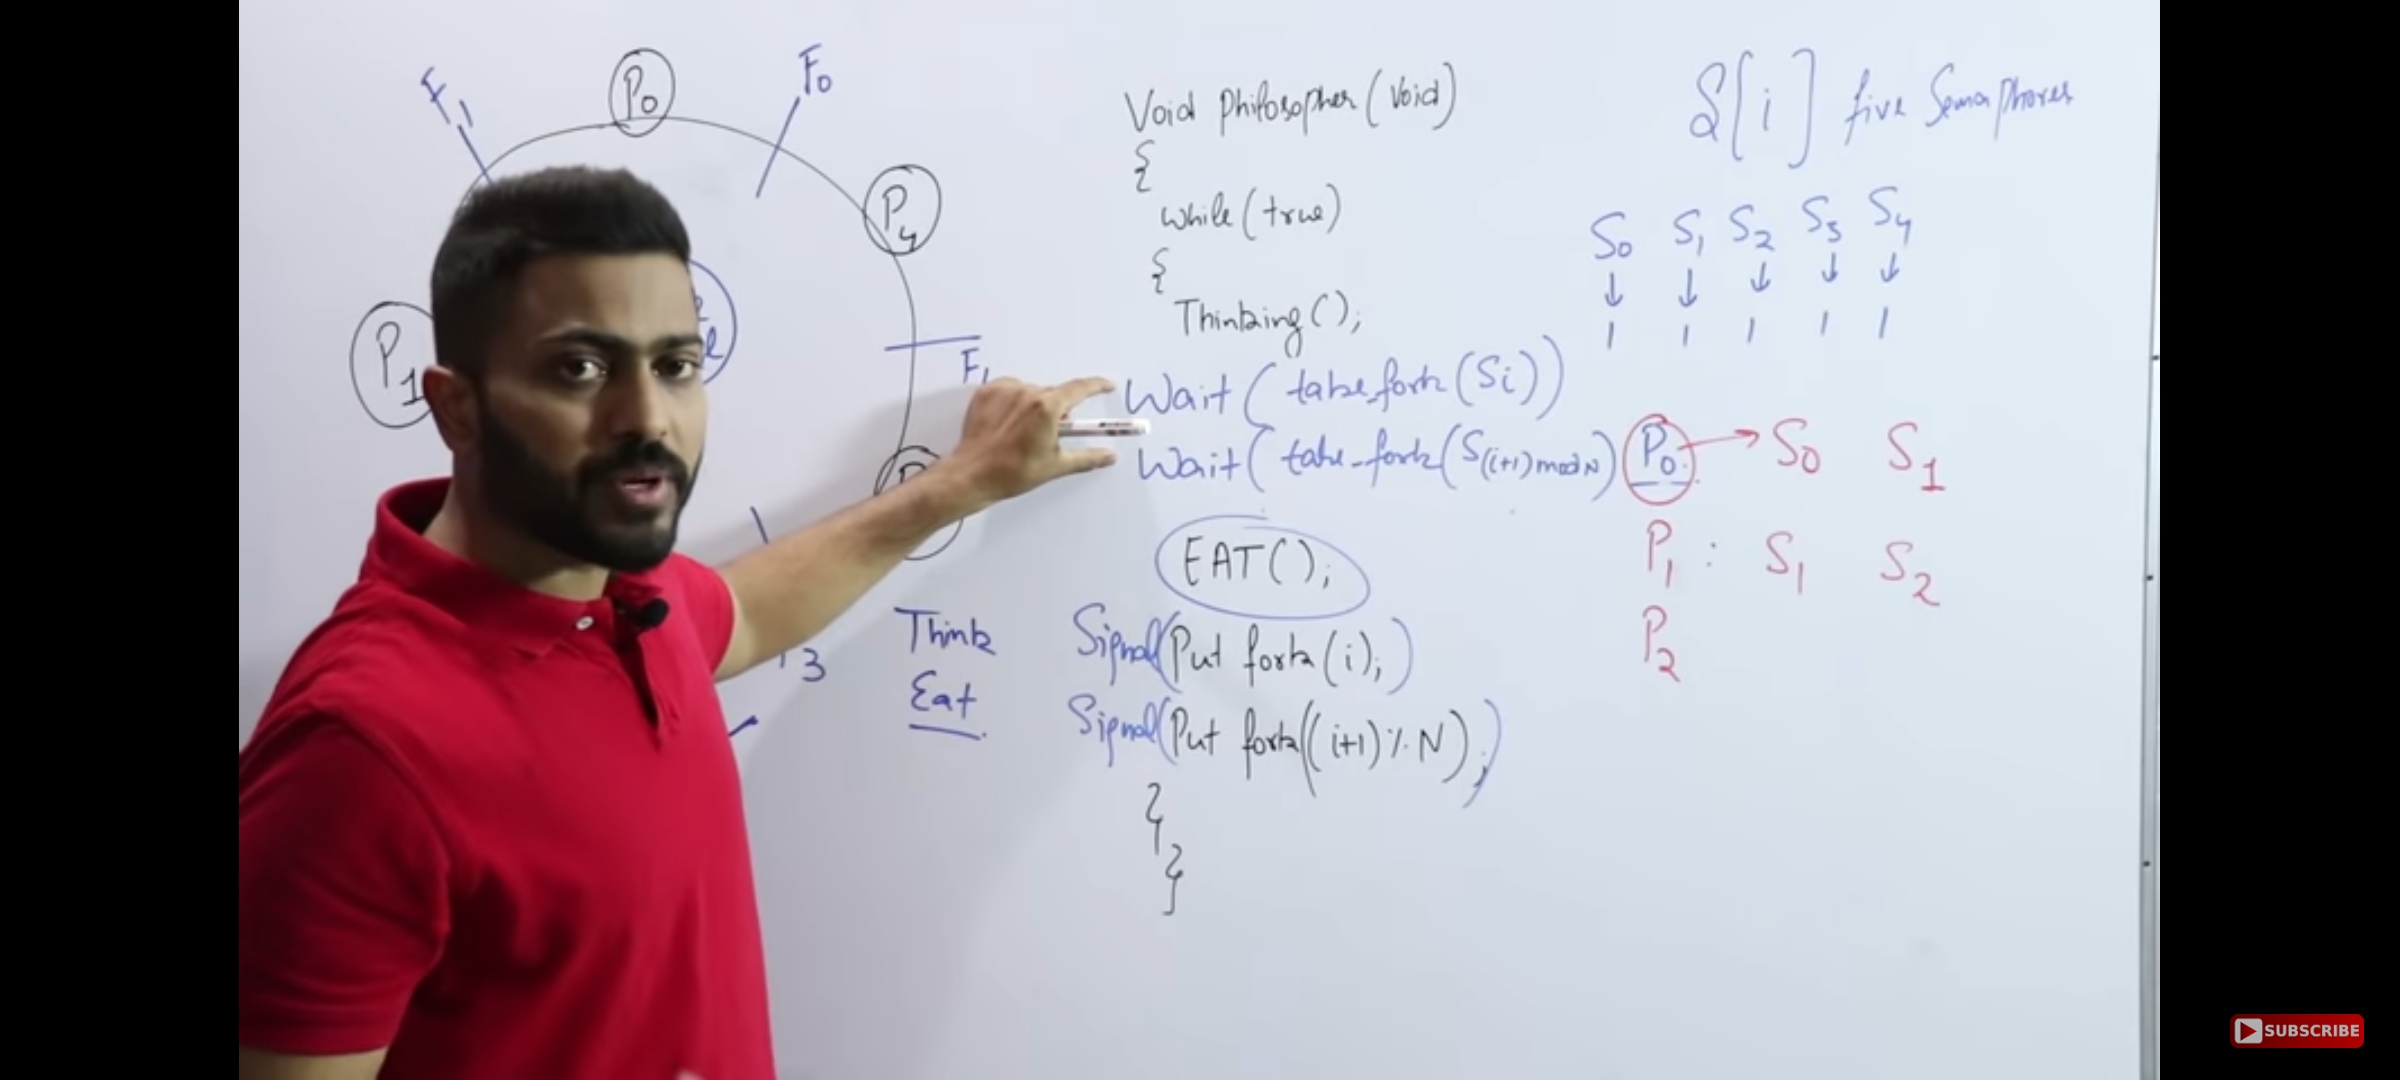 F1
P0
F0
P4
P1
F
3
Think
Eat
Void Philosopher (Void)
{
while (true)
{
Thinking();
Wait ( take_fork (Si))
Wait ( take_fork (S(i+1) mod N)
EAT();
Signal(Put fork (i);)
Signal(Put fork((i+1) % N);)
}
}
S[i] five Semaphores
S0 S1 S2 S3 S4
↓ ↓ ↓ ↓ ↓
1 1 1 1 1
P0 → S0 S1
P1 : S1 S2
P2
SUBSCRIBE